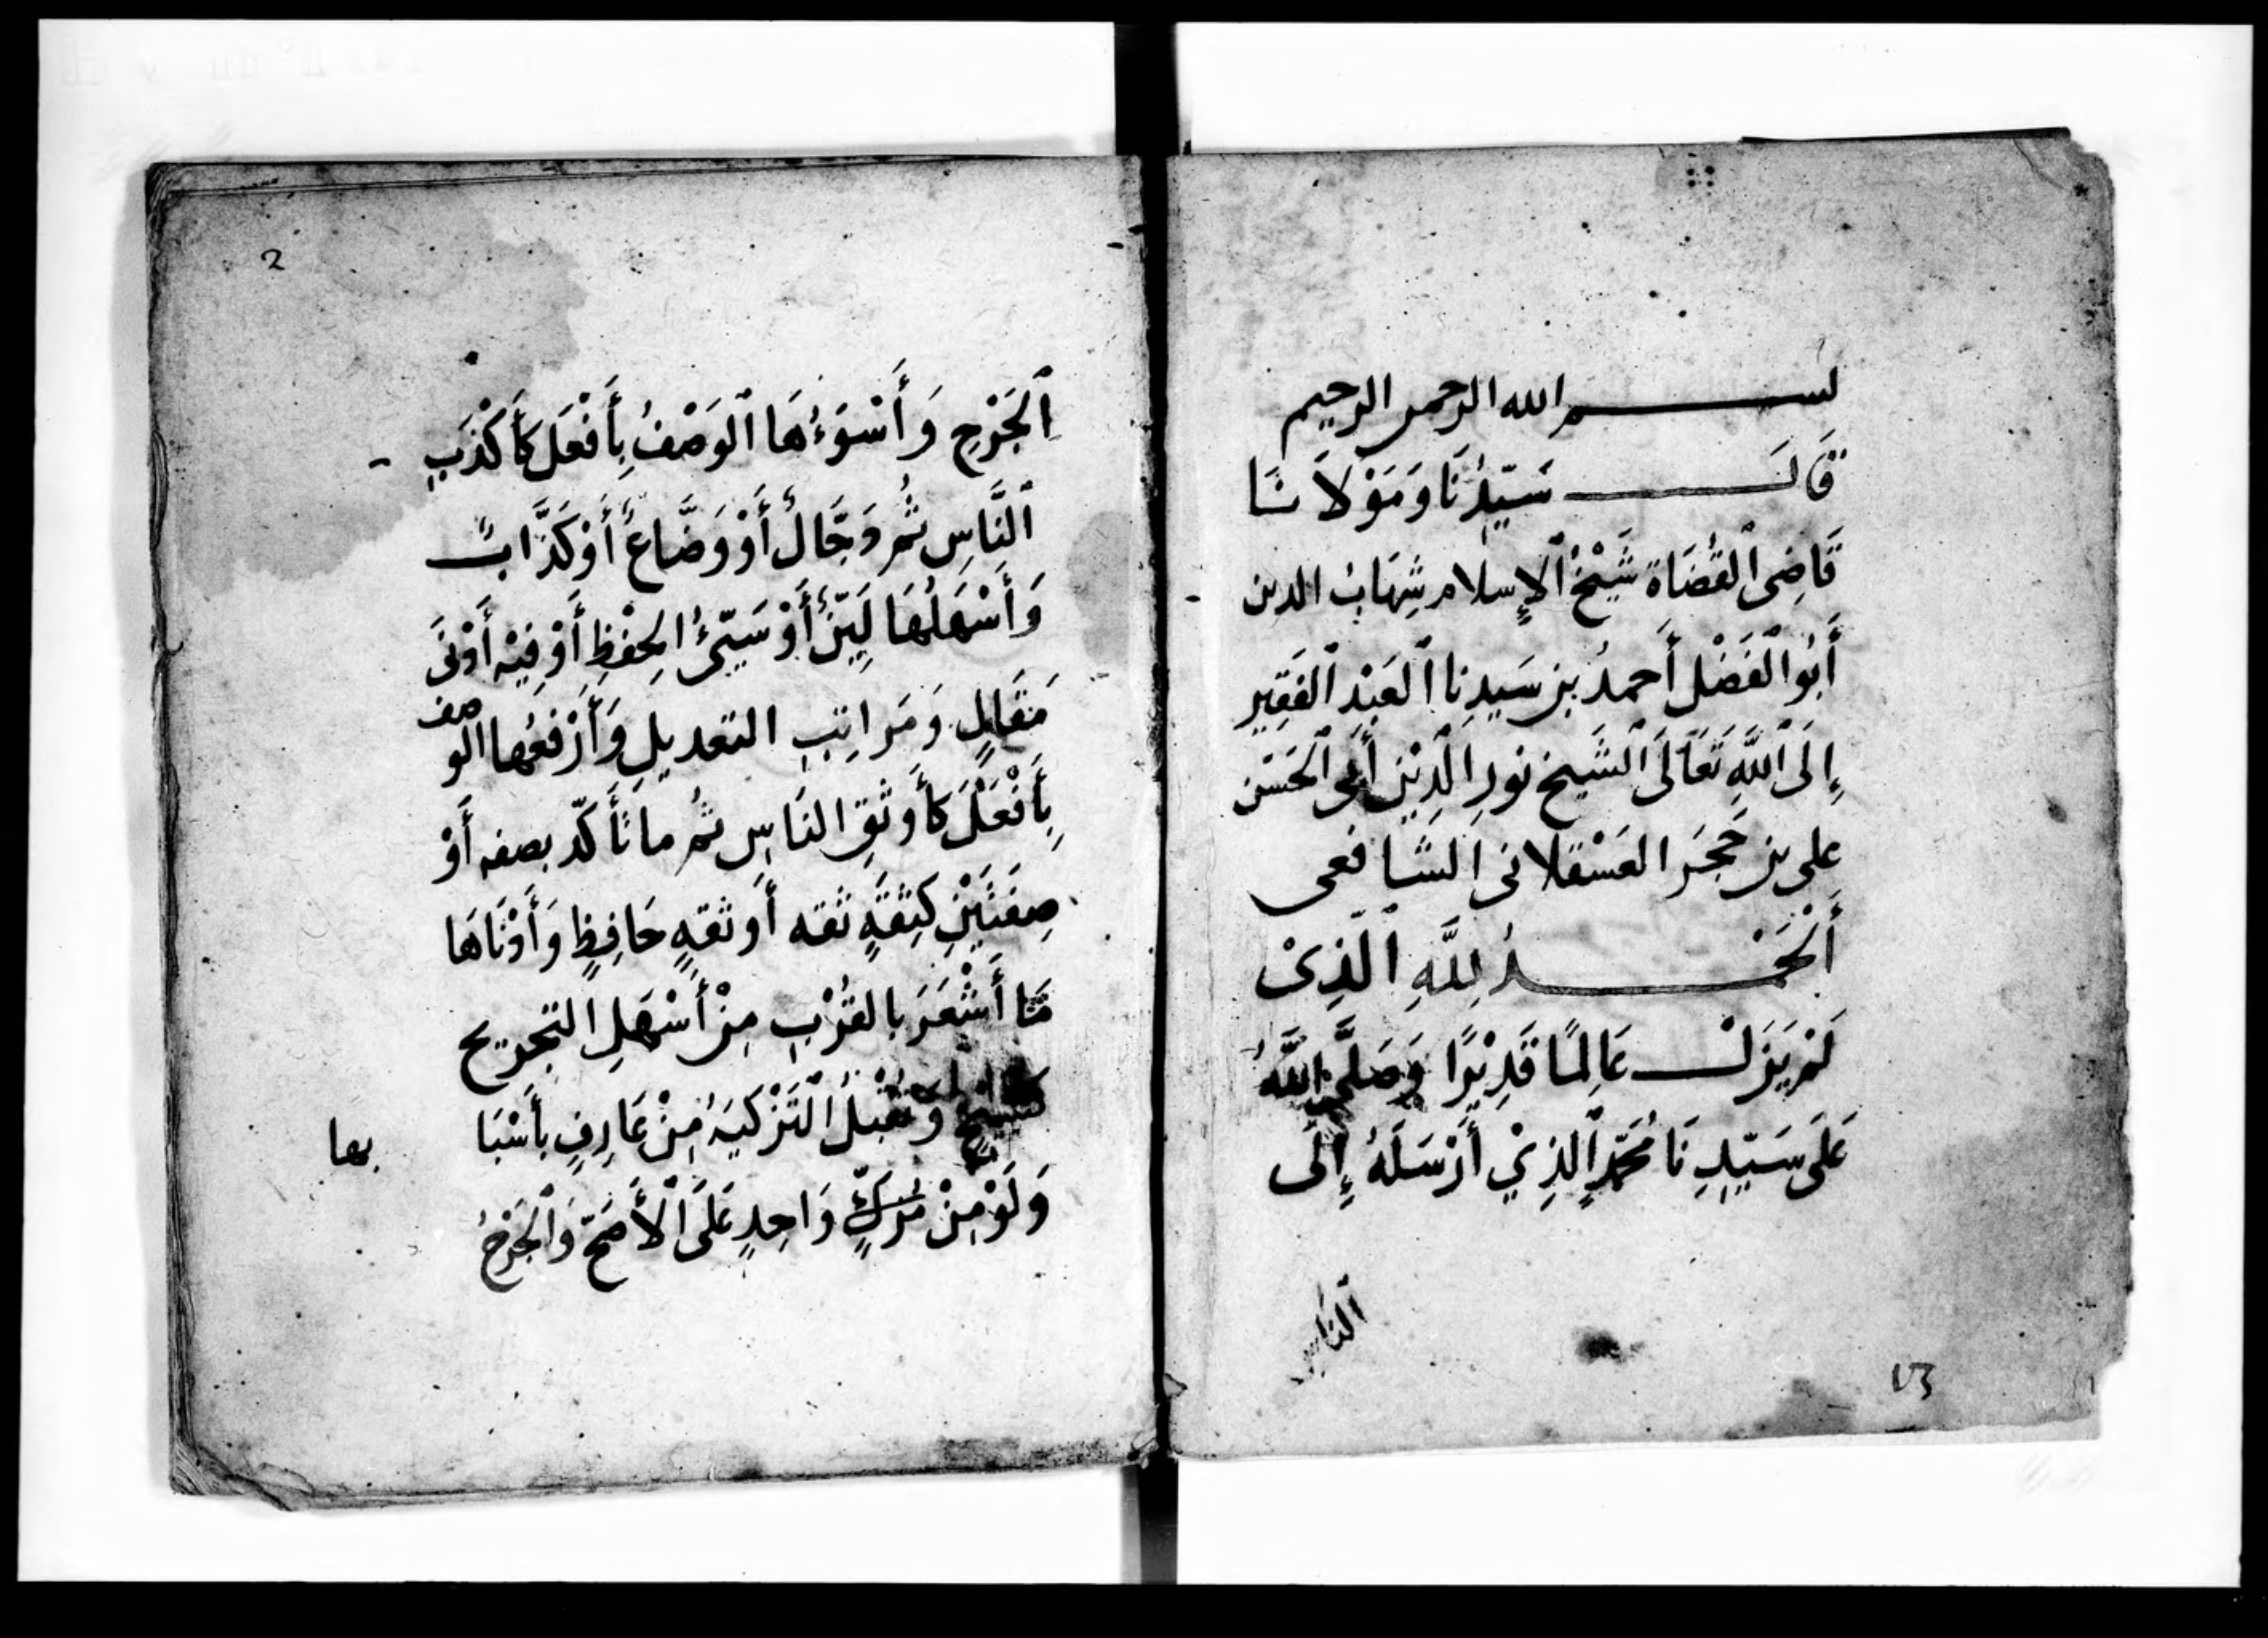 بسم الله الرحمن الرحيم
قَالَ سَيِّدُنَا وَمَوْلَانَا
قَاضِى ٱلقُضَاة شَيْخُ ٱلإِسلام شِهَابُ الدين
أَبُو ٱلفَضْل أَحمدُ بن سَيدِنا ٱلعَبْد ٱلفَقِير
إِلَى ٱللَّهِ تَعَالَى ٱلشَيخ نورِ الَدِيْن أَبى ٱلحَسَن
على بن حَجَر العَسْقلانى الشَافعى
أَلْحَمْدُ لِلَّهِ ٱلَّذِىْ
لَمْ يَزَلْ عَالِمًا قَدِيْرًا وَصَلَّى ٱللَّهُ
عَلَى سَيِّدِنَا مُحَمَّدٍ ٱلذِيْ أَرْسَلَهُ إِلَى
ٱلناس
٧٣
2
ٱلجَرْحِ وَأَسْوَءُهَا ٱلوَصْفُ بِأَفْعَل كَأَكْذَبِ
ٱلنَّاسِ ثُمَ دَجَّالٌ أَوْ وَضَّاعٌ أَوْ كَذَّابٌ
وَأَسْهَلُهَا لَيِّنٌ أَوْ سَيِّئُ الحِفْظِ أَوْ فِيْه أَدْنَى
مَقَالٍ وَمَرَاتِبِ التعديلِ وَأَرْفعُها الوصف
بِأَفْعَلَ كَأَوثَقِ النَاسِ ثُم ما تَأَكّد بصفه أَوْ
صِفَتَيْنِ كَثِقَةٍ ثقه أَو ثقةٍ حَافِظٍ وَأَدْنَاهَا
مَا أَشْعَرَ بالقُرْبِ مِنْ أَسْهَلِ التجريح
كشيخ وَتُقْبَلُ ٱلتَزْكيَةُ مِنْ عَارِفٍ بأَسْبَا
بها
وَلَوْ مِنْ مُزَكٍّ وَاحِدٍ عَلَى ٱلأَصَحّ وَٱلجَرْحُ